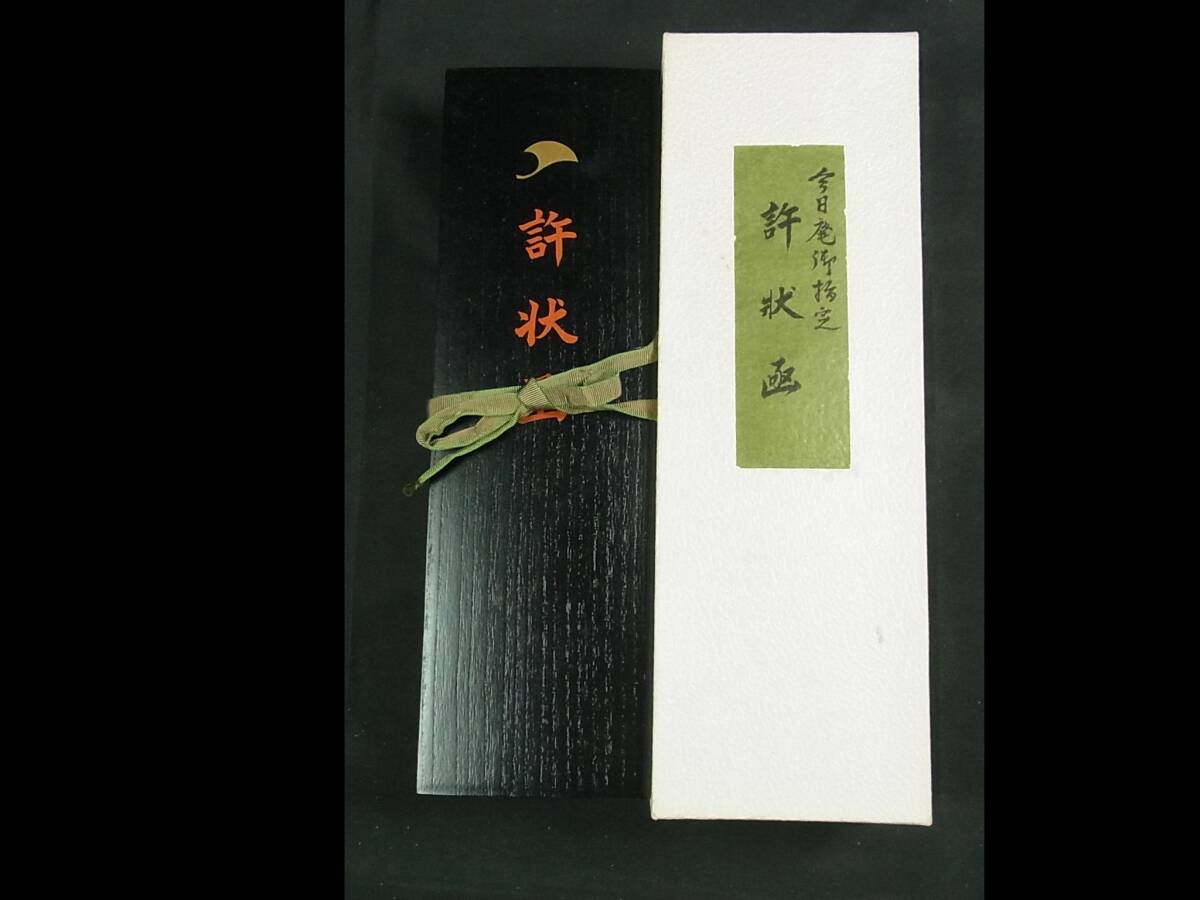 許状函
今日庵御指定
許狀函